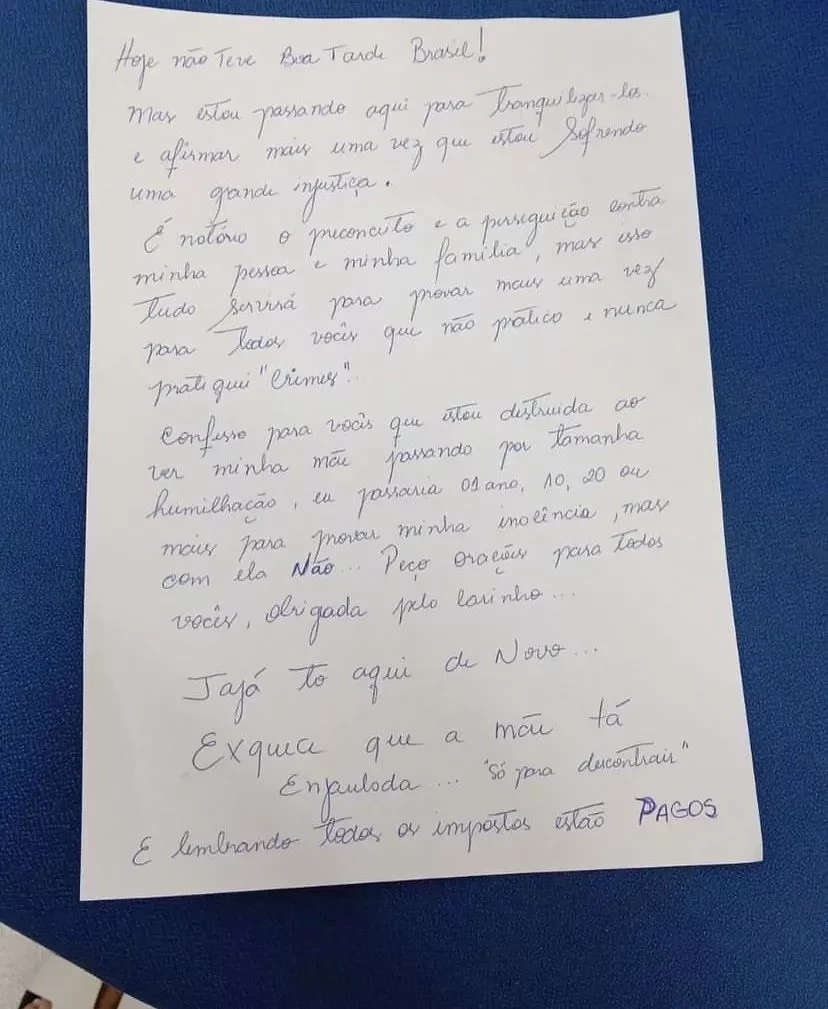 Hoje não Teve Boa Tarde Brasil!
Mas estou passando aqui para Tranquilizar-los
e afirmar mais uma vez que estou Sofrendo
uma grande injustiça.
É notório o preconceito e a perseguição contra
minha pessoa e minha família, mas isso
Tudo Servirá para provar mais uma vez
para Todos vocês que não prático e nunca
pratiquei "Crimes".
Confesso para vocês que estou destruida ao
ver minha mãe passando por tamanha
humilhação, eu passaria 01 ano, 10, 20 ou
mais para provar minha inocência, mas
com ela Não... Peço orações para Todos
vocês, Obrigada pelo Carinho...
Jajá to aqui de Novo...
Exquece que a mãe tá
Enjaulada... "Só para descontrair"
E lembrando Todos os impostos estão PAGOS